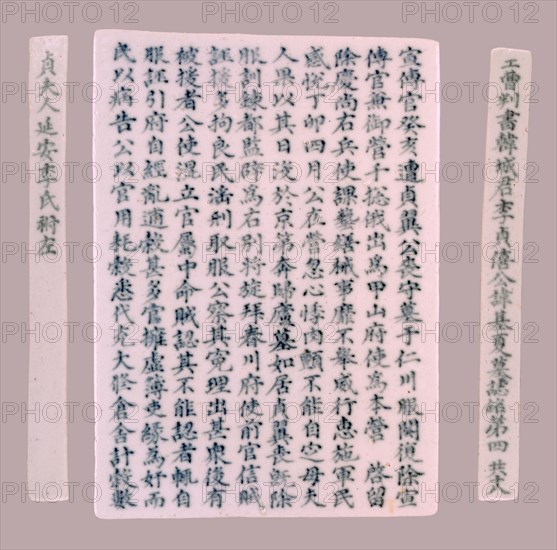 工曹判書韓城君李貞僖公諱基夏墓誌銘第四 共十八
宣傳官癸亥遭貞翼公喪守墓于仁川服闋復除宣
傳官兼御營千摠俄出為甲山府使為本營 啓留
除慶尚右兵使課藝繕械事靡不舉威行惠施軍民
感悅丁卯四月公在營忽心悸肉顫不能自定母夫
人果以其日沒於京第奔歸廬墓如居貞翼喪既除
服訓鍊都監辟為右別將旋拜春川府使前官信賊
誣援多拘良民濫刑取服公察其冤理出甚衆後有
被援者公使混立官屬中命賊認其不能認者輒自
服誣引府自經亂逋糓甚多官擁虛簿吏緣為奸而
民以病告公以官用耗糓悉代充大修倉舍計糓數
貞夫人延安李氏祔左
PHOTO 12